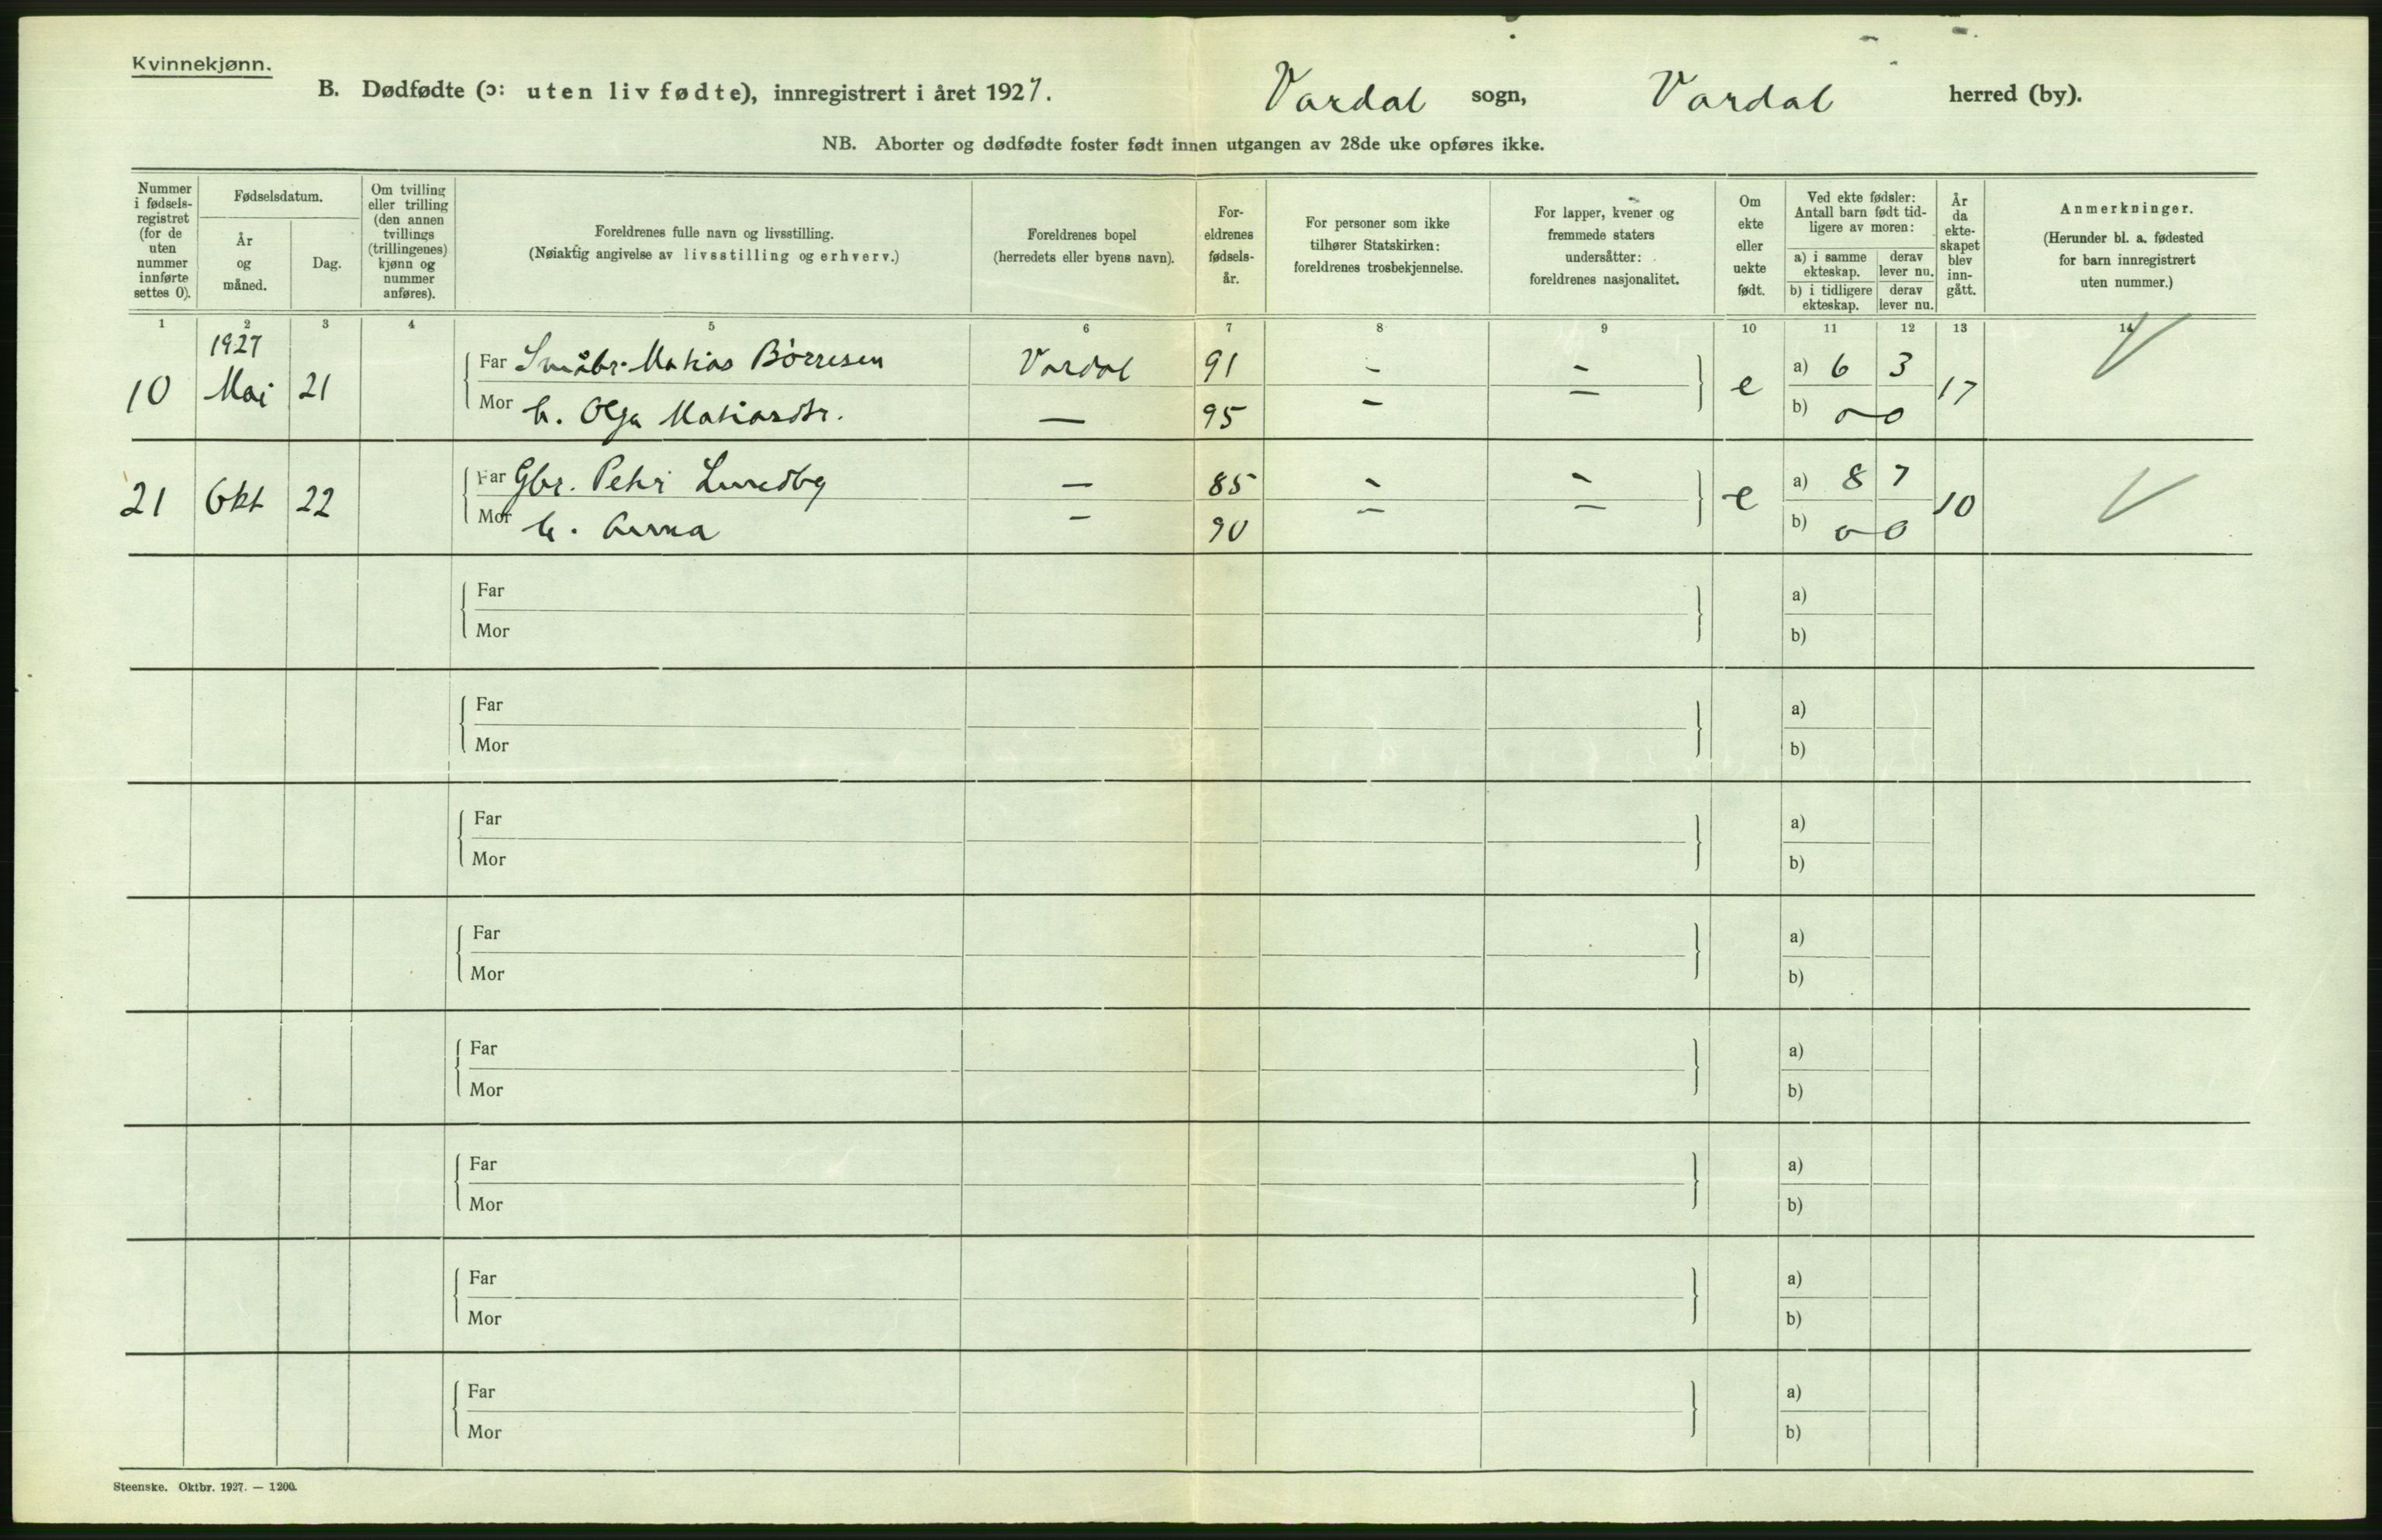 Kvinnekjønn.
B. Dødfødte (ɔ: uten liv fødte), innregistrert i året 1927. Vardal sogn, Vardal herred (by).
NB. Aborter og dødfødte foster født innen utgangen av 28de uke opføres ikke.
Nummer i fødsels-registret (for de uten nummer innførte settes 0).
Fødselsdatum.
År og måned.
Dag.
Om tvilling eller trilling (den annen tvillings (trillingenes) kjønn og nummer anføres).
Foreldrenes fulle navn og livsstilling.
(Nøiaktig angivelse av livsstilling og erhverv.)
Foreldrenes bopel
(herredets eller byens navn).
For-eldrenes fødsels-år.
For personer som ikke tilhører Statskirken: foreldrenes trosbekjennelse.
For lapper, kvener og fremmede staters undersåtter: foreldrenes nasjonalitet.
Om ekte eller uekte født.
Ved ekte fødsler: Antall barn født tid-ligere av moren:
a) i samme ekteskap. derav lever nu.
b) i tidligere ekteskap. derav lever nu.
År da ekte-skapet blev inn-gått.
Anmerkninger.
(Herunder bl. a. fødested for barn innregistrert uten nummer.)
1 2 3 4 5 6 7 8 9 10 11 12 13 14
1927
10 Mai 21 Far Småbr. Matias Børresen Vardal 91 - - e a) 6 3 17
Mor h. Olga Matiasdtr. — 95 - - b) 0 0
21 Okt 22 Far Gbr. Peter Lundby — 85 - - e a) 8 7 10
Mor h. Anna — 90 - - b) 0 0
Far a)
Mor b)
Far a)
Mor b)
Far a)
Mor b)
Far a)
Mor b)
Far a)
Mor b)
Far a)
Mor b)
Far a)
Mor b)
Far a)
Mor b)
Steenske. Oktbr. 1927. — 1200.